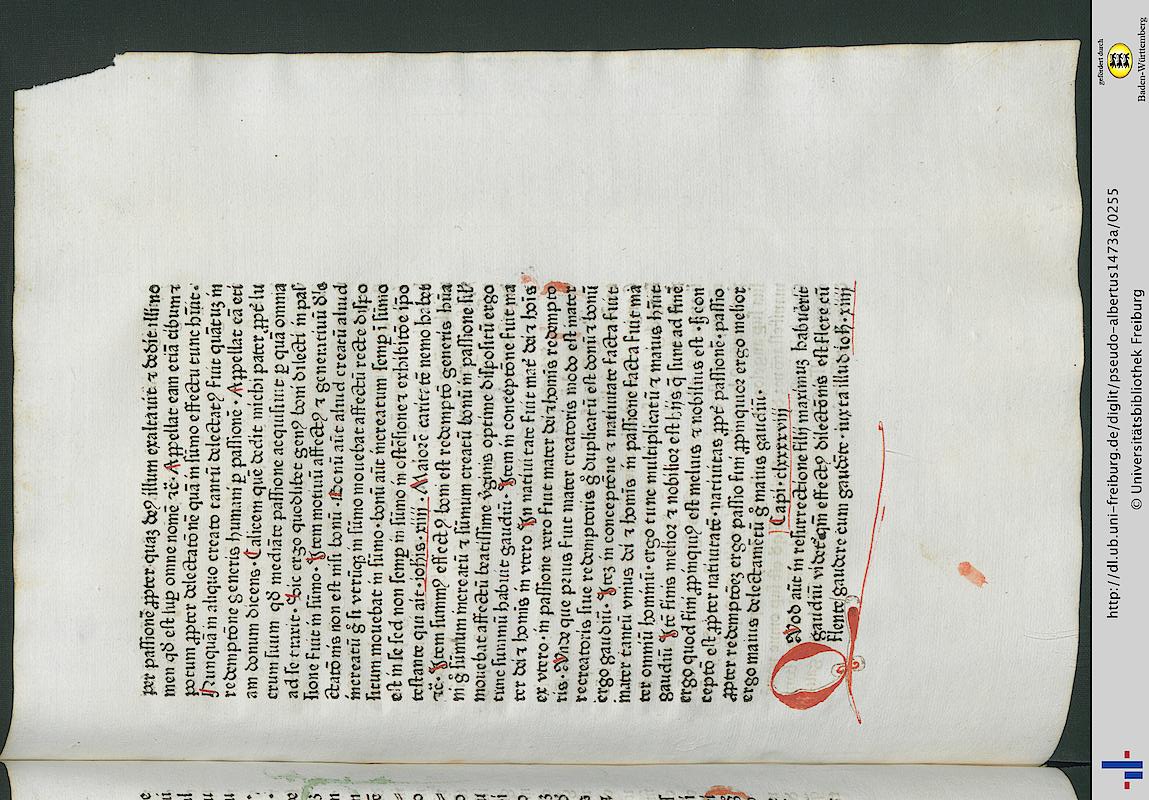 per passionē ꝓpter quaȝ deꝰ illum exaltauit ⁊ dedit illi no
men qḋ est sup omne nomē ⁊c̄· Appellat eam etiā cibum ⁊
potum ꝓpter delectatōnē quā in sūmo effectu tunc hūit·
Nunquā in aliquo creato tantū delectatꝰ fuit quātuȝ in
redemptōne generis humani p passionē· Appellat eā eti
am donum dicens· Calicem quē dedit michi pater ꝓpt̄ lu
crum suum qḋ mediāte passione acquisiuit p quā omnia
ad se traxit· Hic ergo quodlibet genꝰ boni dilecti in pas
sione fuit in sūmo· Item motiuū affectꝰ ⁊ generatiuū dile
ctatōnis non est nisi bonū· Bonū aūt aliud creatū aliud
increatū g̊ si vtrūqȝ in sūmo mouebat affectū recte dispo
situm mouebat in sūmo· bonū aūt increatum semp ī sūmo
est in se sed non semp in sūmo in ostēsione ⁊ exhibitōe ip̄o
testante qui ait· iohīs· xiiij· Maiorē caritatē nemo habet
⁊c̄· Item summꝰ effectꝰ boni est redemptō generis huā
ni g̊ sūmum increatū ⁊ sūmum creatū bonū in passione filij
mouebat affectū beatissime v̄ginis optime dispositū ergo
tunc summū habuit gaudiū· Item in conceptōne fuit ma
ter dei ⁊ hoīs in vtero In natiuitate fuit mat̄ dei ⁊ hoīs
ex vtero· in passione vero fuit mater dei ⁊ hoīis redempto
ris· Vnde que prius fuit mater creatoris modo est mater
recreatoris siue redemptoris g̊ duplicatū est donū ⁊ bonū
ergo gaudiū· Iteȝ in conceptōe ⁊ natiuitate facta fuit
mater tantū vnius dei ⁊ hoīis in passione facta fuit ma
ter omniū hominū· ergo tunc multiplicatū ⁊ maius hūit
gaudiū Itē finis melior ⁊ nobilior est hijs q̄ sunt ad finē
ergo quod fini ꝓpinquiꝰ est melius ⁊ nobilius est· sȝ con
ceptō est ꝓpter natiuitatē· natiuitas ꝓpt̄ passionē· passio
ꝓpter redemptōeȝ ergo passio fini ꝓpinquior ergo melior
ergo maius delectamētū g̊ maius gaudiū·
Capi· clxxxxviij
Quod aūt in resurrectione filij maximuȝ habuerit
gaudiū videt̄ qm̄ effectꝰ dilectōnis est flere cū
flente gaudere cum gaudēte· iuxta illud ioh̄· xiiij
gefördert durch
Baden-Württemberg
http://dl.ub.uni-freiburg.de/diglit/pseudo-albertus1473a/0255
© Universitätsbibliothek Freiburg